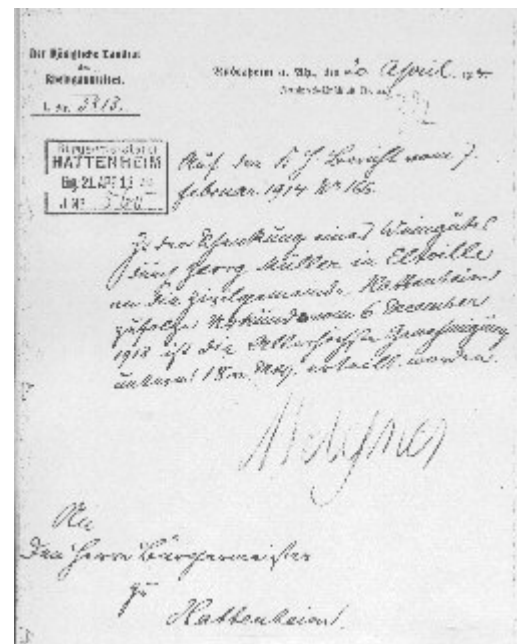 Der Königliche Landrat
des
Rheingaukreises.
Rüdesheim a. Rh., den 20 April 191
J. Nr. 3313.
Bürgermeisterei
HATTENHEIM
Eing. 21. APR 1
J. Nr.
Auf den Bericht vom 7.
Februar 1914 № 166.
Zu der Schenkung eines Weingutes
durch Georg Müller in Eltville
an die Zivilgemeinde Hattenheim
zufolge Urkunde vom 6 December
1913 ist die Allerhöchste Genehmigung
unterm 18 v. Mts. erteilt worden.
An
Den Herrn Bürgermeister
zu
Hattenheim.